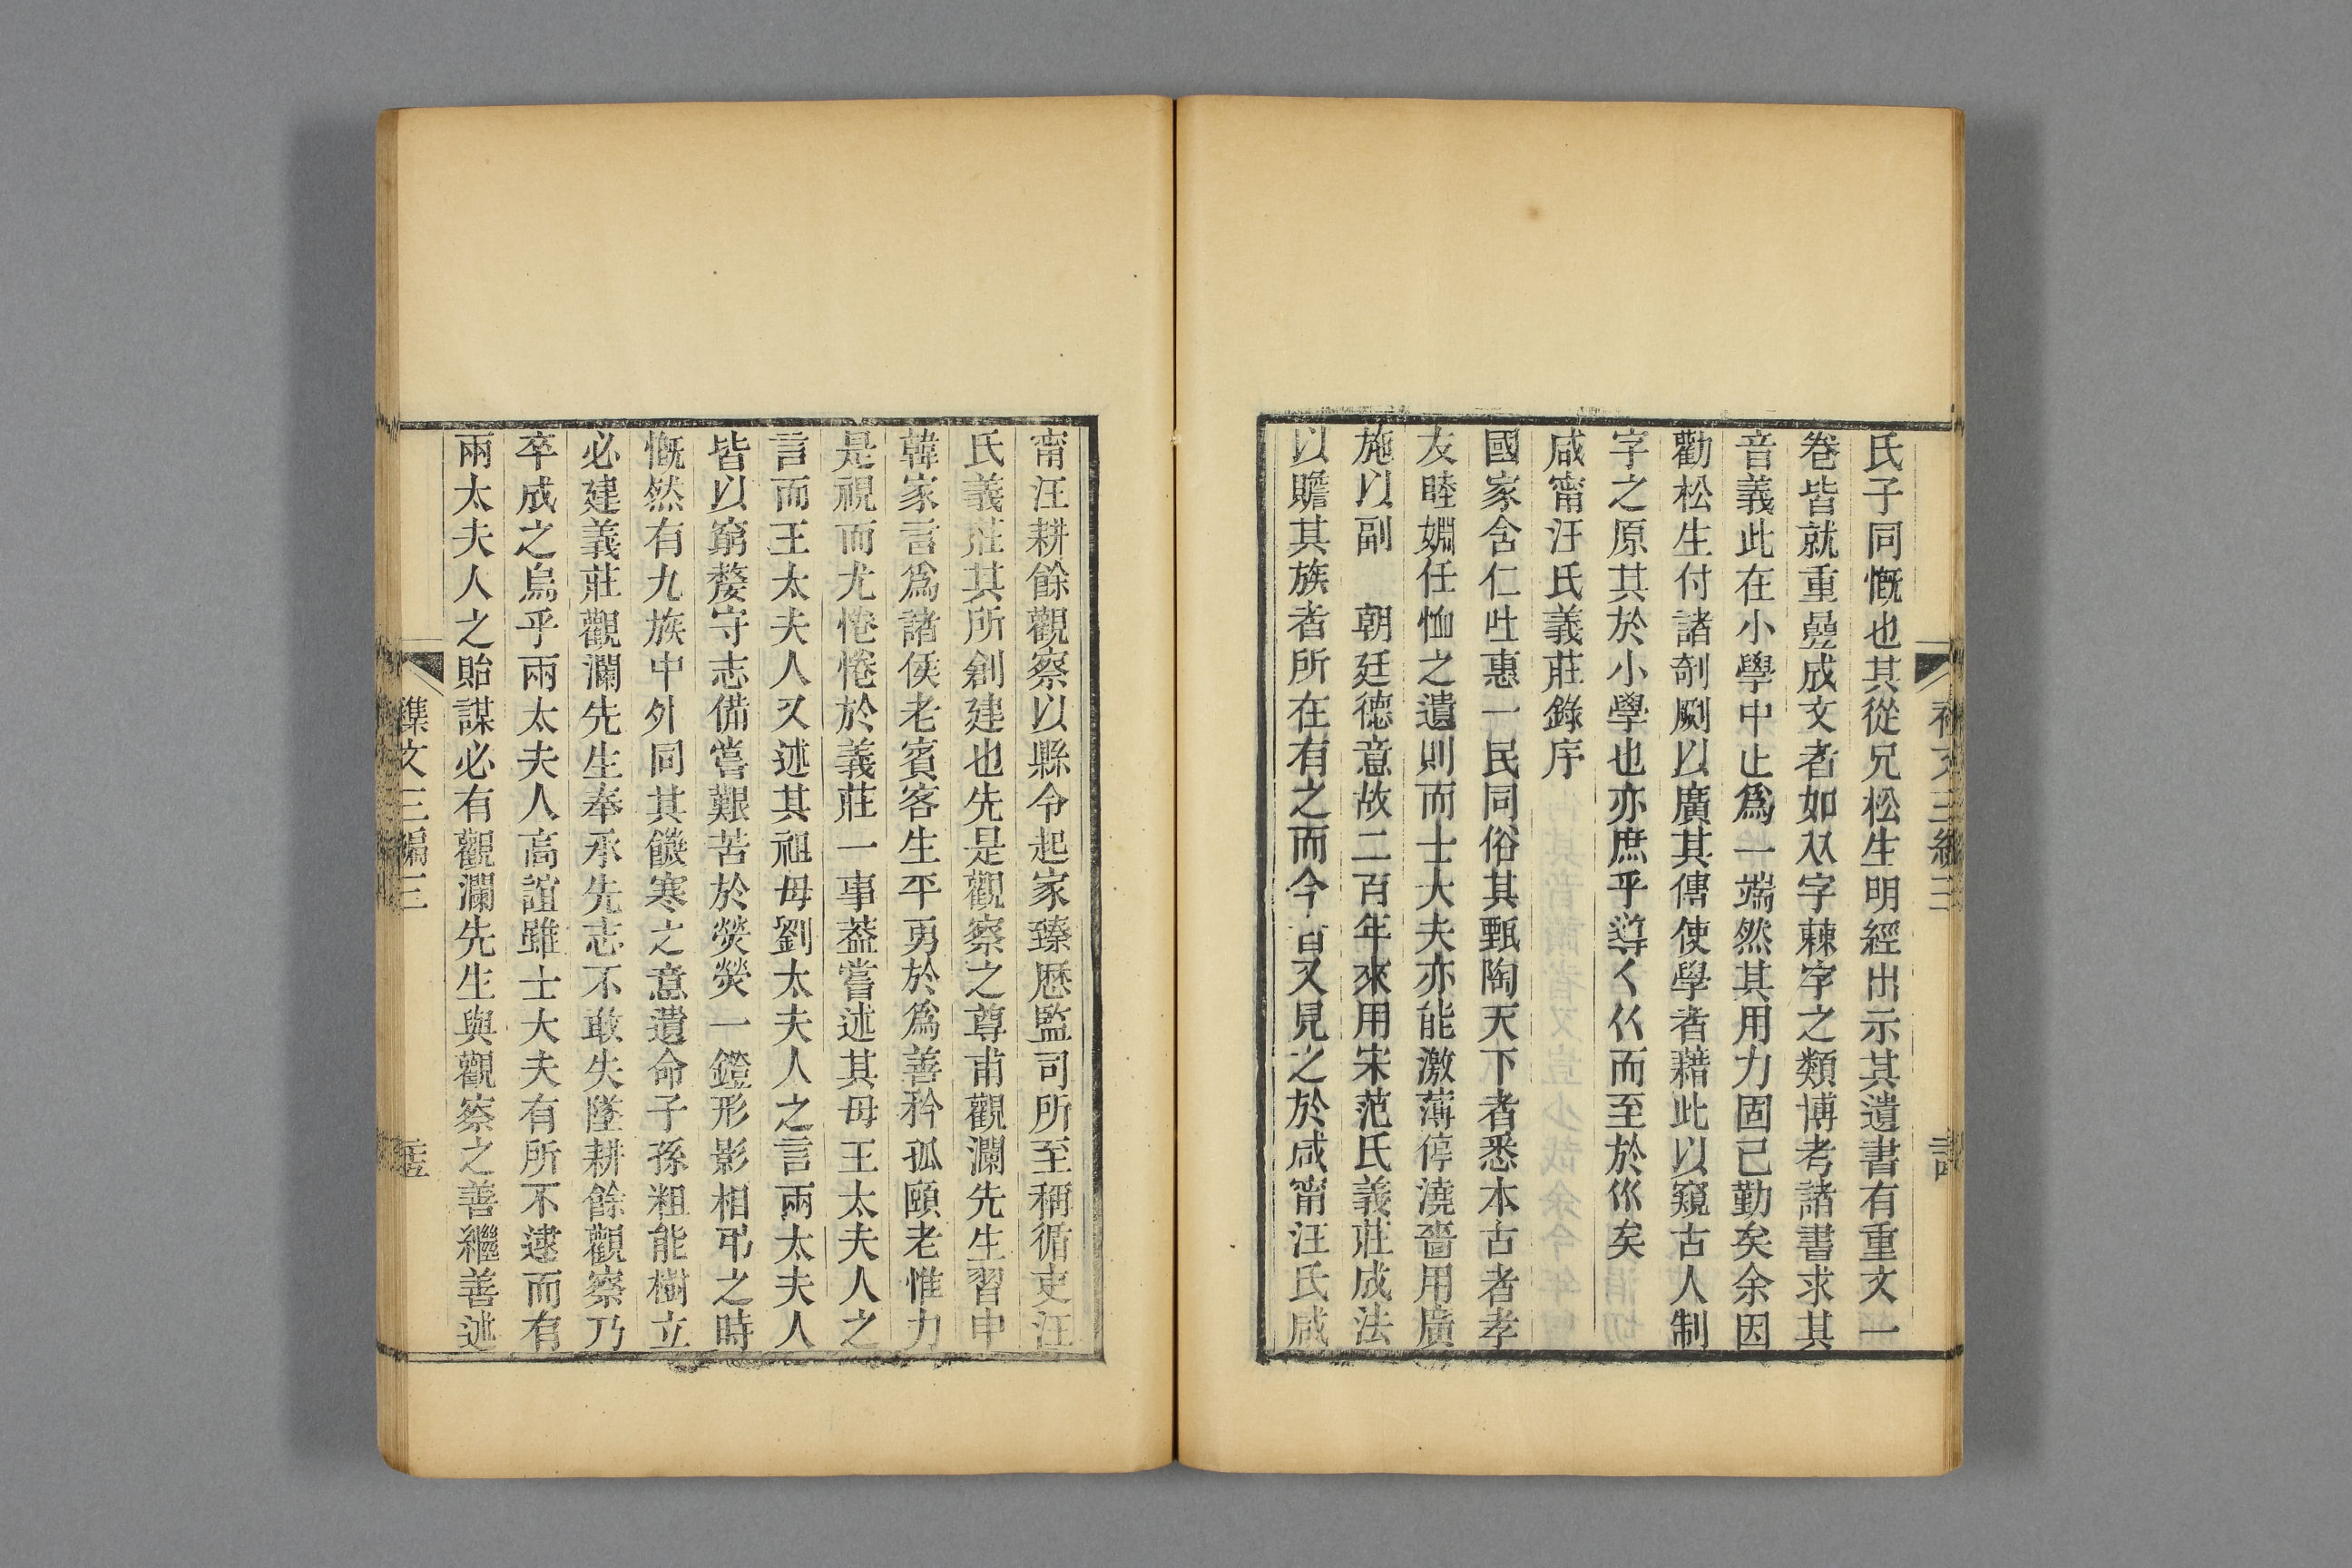 氏子同慨也其從兄松生明經出示其遺書有重文一
卷皆就重疊成文者如㸚字𣗥字之類博考諸書求其
音義此在小學中止爲一端然其用力固已勤矣余因
勸松生付諸剞劂以廣其傳使學者藉此以窺古人制
字之原其於小學也亦庶乎導〱𠔁而至於巛矣
咸甯汪氏義莊錄序
國家含仁吐惠一民同俗其甄陶天下者悉本古者孝
友睦婣任恤之遺則而士大夫亦能激薄停澆嗇用廣
施以副　朝廷德意故二百年來用宋范氏義莊成法
以贍其族者所在有之而今又見之於咸甯汪氏咸
甯汪耕餘觀察以縣令起家臻歷監司所至稱循吏汪
氏義莊其所創建也先是觀察之尊甫觀瀾先生習申
韓家言爲諸侯老賓客生平勇於爲善矜孤頤老惟力
是視而尤惓惓於義莊一事葢嘗述其母王太夫人之
言而王太夫人又述其祖母劉太夫人之言兩太夫人
皆以窮嫠守志備嘗艱苦於熒熒一鐙形影相弔之時
慨然有九族中外同其饑寒之意遺命子孫粗能樹立
必建義莊觀瀾先生奉承先志不敢失墜耕餘觀察乃
卒成之烏乎兩太夫人高誼雖士大夫有所不逮而有
兩太夫人之貽謀必有觀瀾先生與觀察之善繼善述
襍文三編三